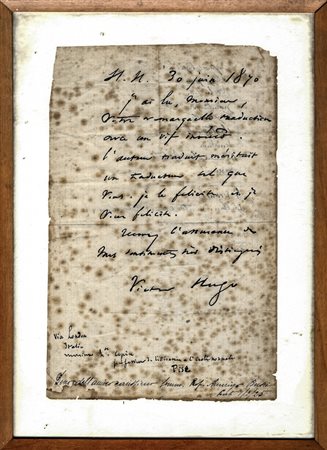 H. H. 30 juin 1870
J'ai lu, Monsieur,
votre remarquable traduction
avec un vif intérêt.
l'auteur traduit méritait
un traducteur tel que
vous. je le félicite et je
vous félicite.
l'assurance de
mes sentiments très distingués
Victor Hugo
Via London
Italie
monsieur
professeur de à l'école
Pise